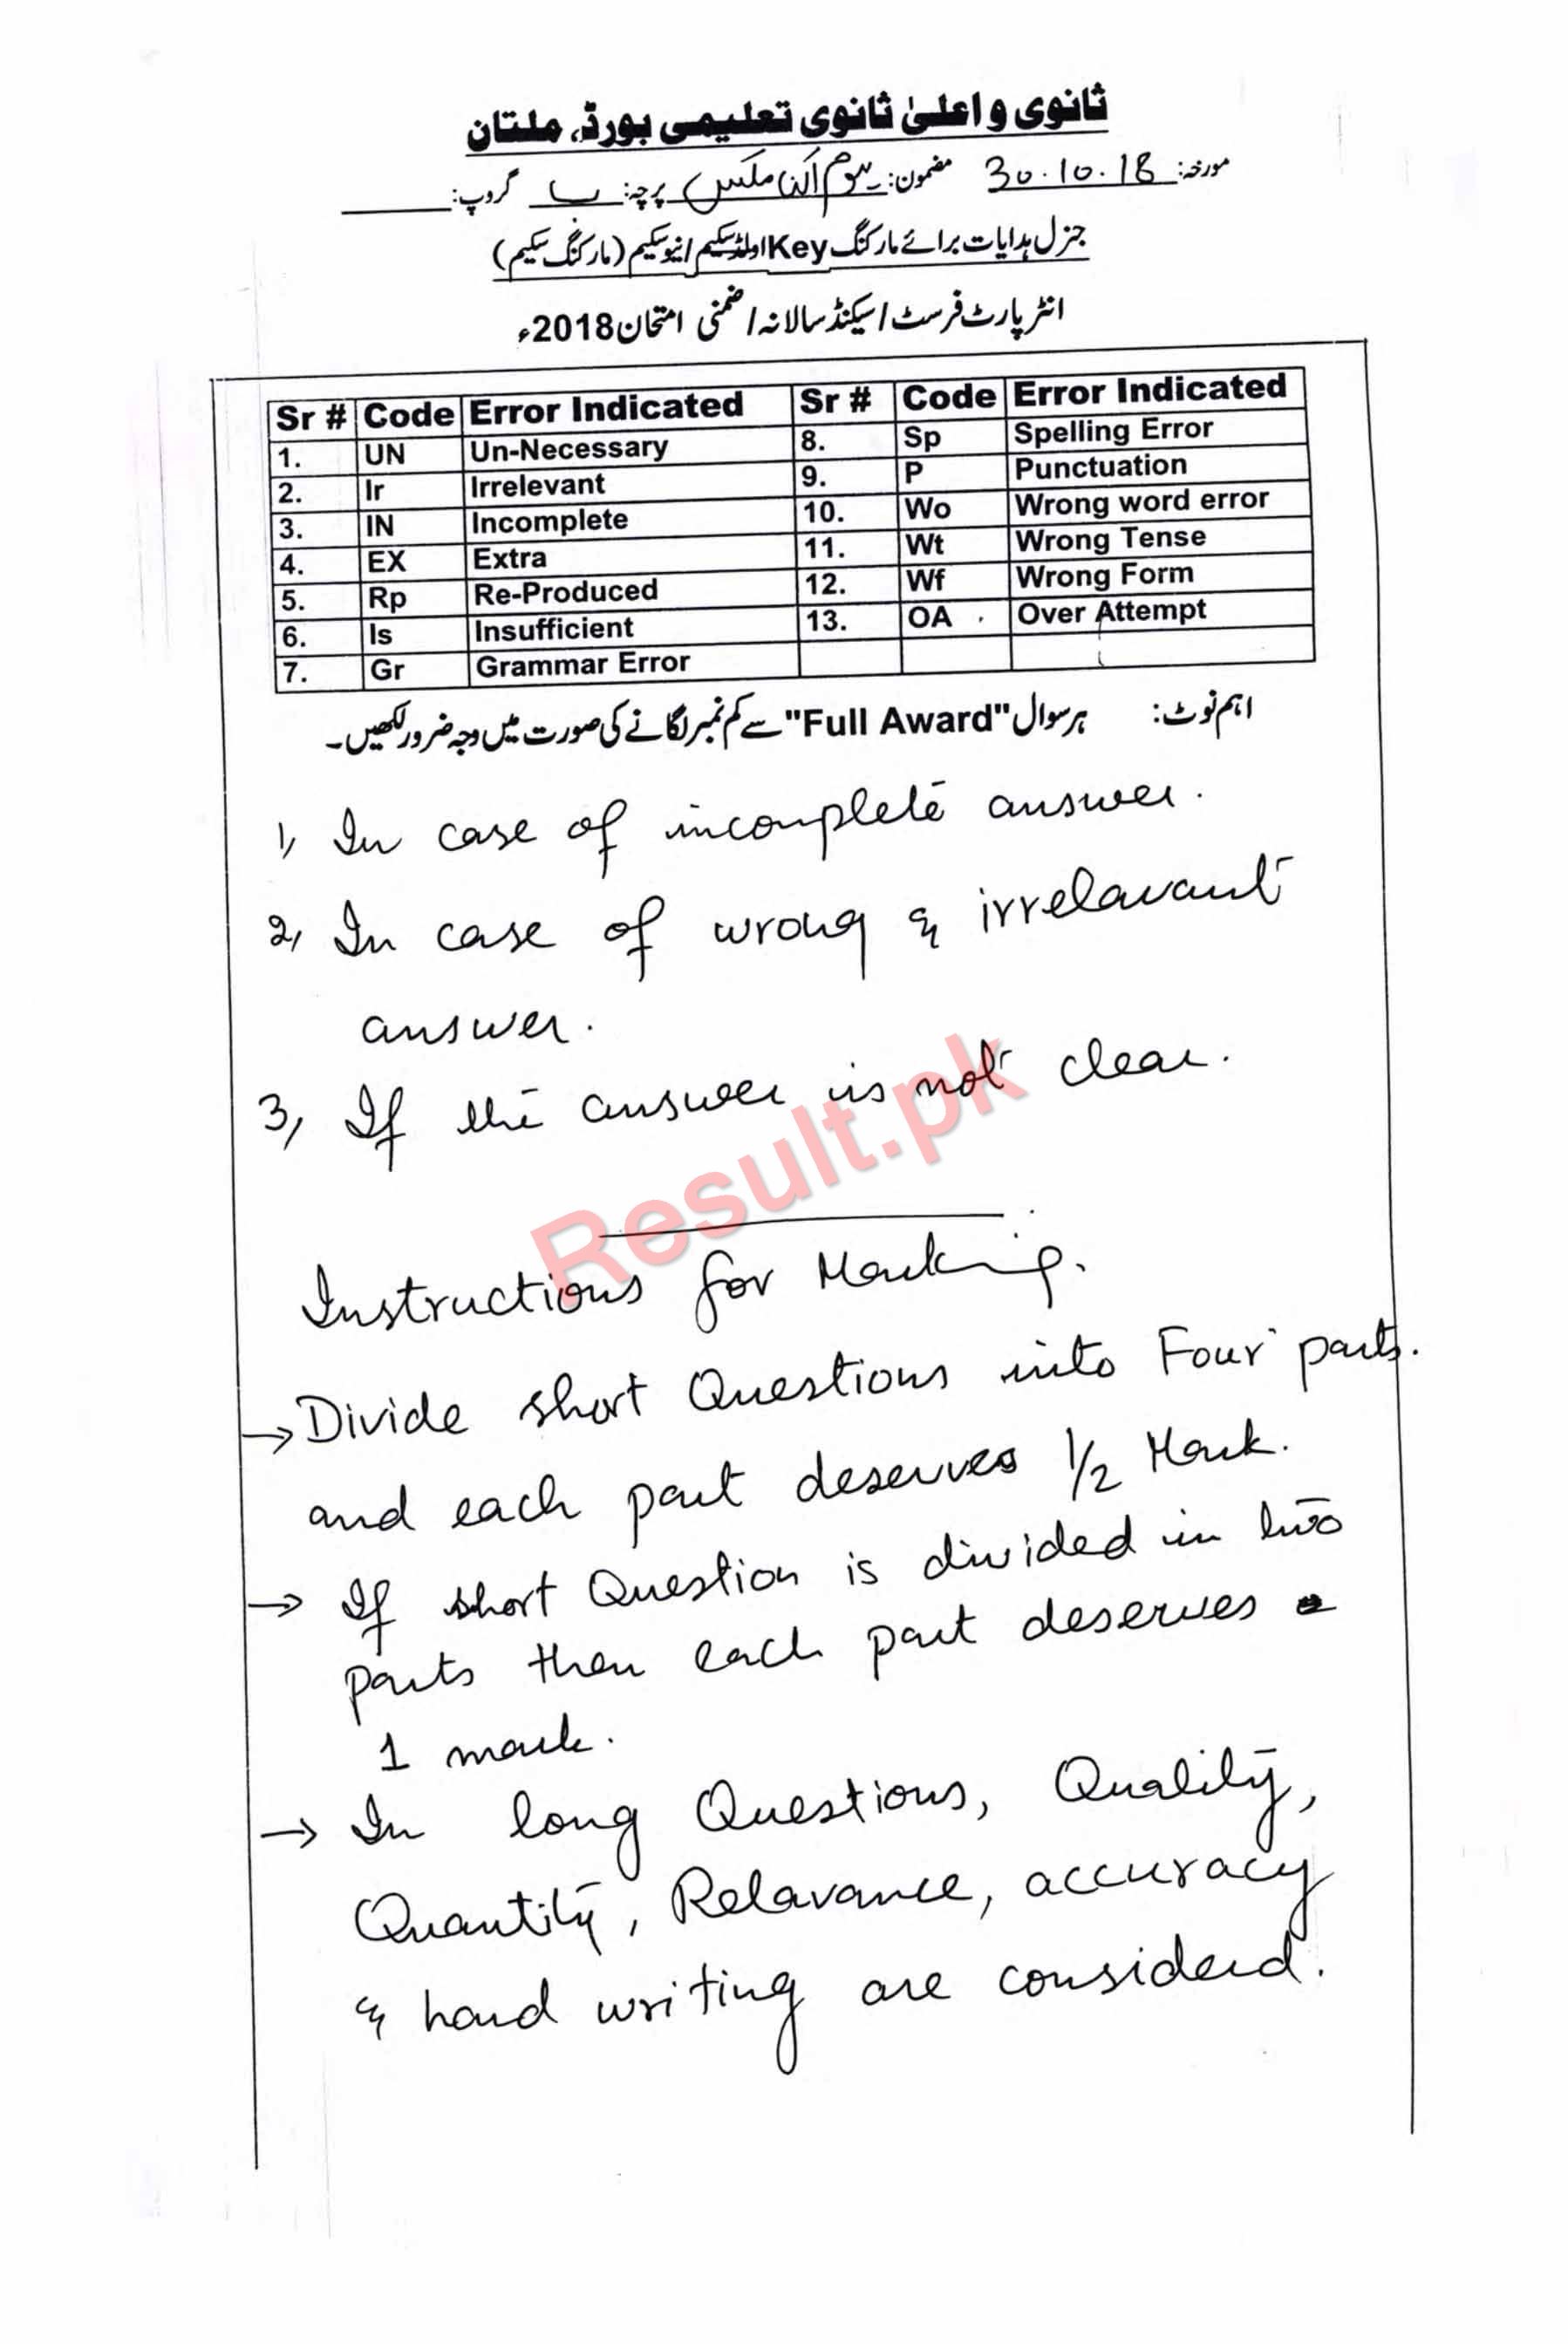 ثانوی و اعلیٰ ثانوی تعلیمی بورڈ، ملتان
مورخہ: 30.10.18 مضمون: ہوم اکنامکس پرچہ: ب گروپ:
جنرل ہدایات برائے مارکنگ Key اولڈ سکیم / نیو سکیم (مارکنگ سکیم)
انٹر پارٹ فرسٹ / سیکنڈ سالانہ / ضمنی امتحان 2018ء
Sr # Code Error Indicated Sr # Code Error Indicated
1. UN Un-Necessary 8. Sp Spelling Error
2. Ir Irrelevant 9. P Punctuation
3. IN Incomplete 10. Wo Wrong word error
4. EX Extra 11. Wt Wrong Tense
5. Rp Re-Produced 12. Wf Wrong Form
6. Is Insufficient 13. OA Over Attempt
7. Gr Grammar Error
اہم نوٹ: ہر سوال "Full Award" سے کم نمبر لگانے کی صورت میں وجہ ضرور لکھیں۔
1, In case of incomplete answer.
2, In case of wrong & irrelavant
answer.
3, If the answer is not clear.
Result.pk
Instructions for Marking.
→ Divide short Questions into Four parts.
and each part deserves 1/2 Mark.
→ If short Question is divided in two
parts then each part deserves
1 mark.
→ In long Questions, Quality,
Quantity, Relavance, accuracy
& hand writing are considerd.